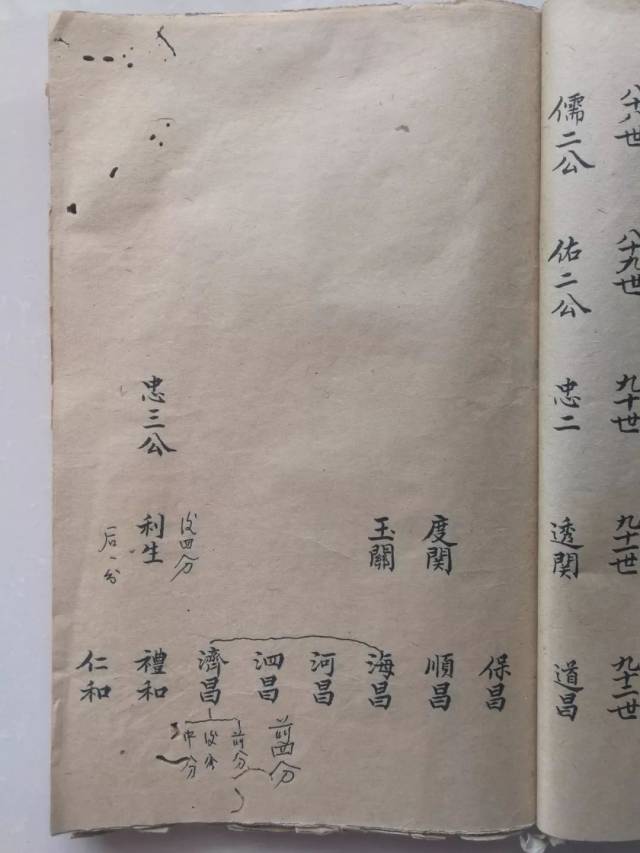 八十八世
八十九世
九十世
九十一世
九十二世
儒二公
佑二公
忠二
透関
道昌
保昌
度関
順昌
玉關
海昌
河昌
泗昌
前四分
濟昌
前分
後分
中分
忠三公
後四分
利生
禮和
仁和